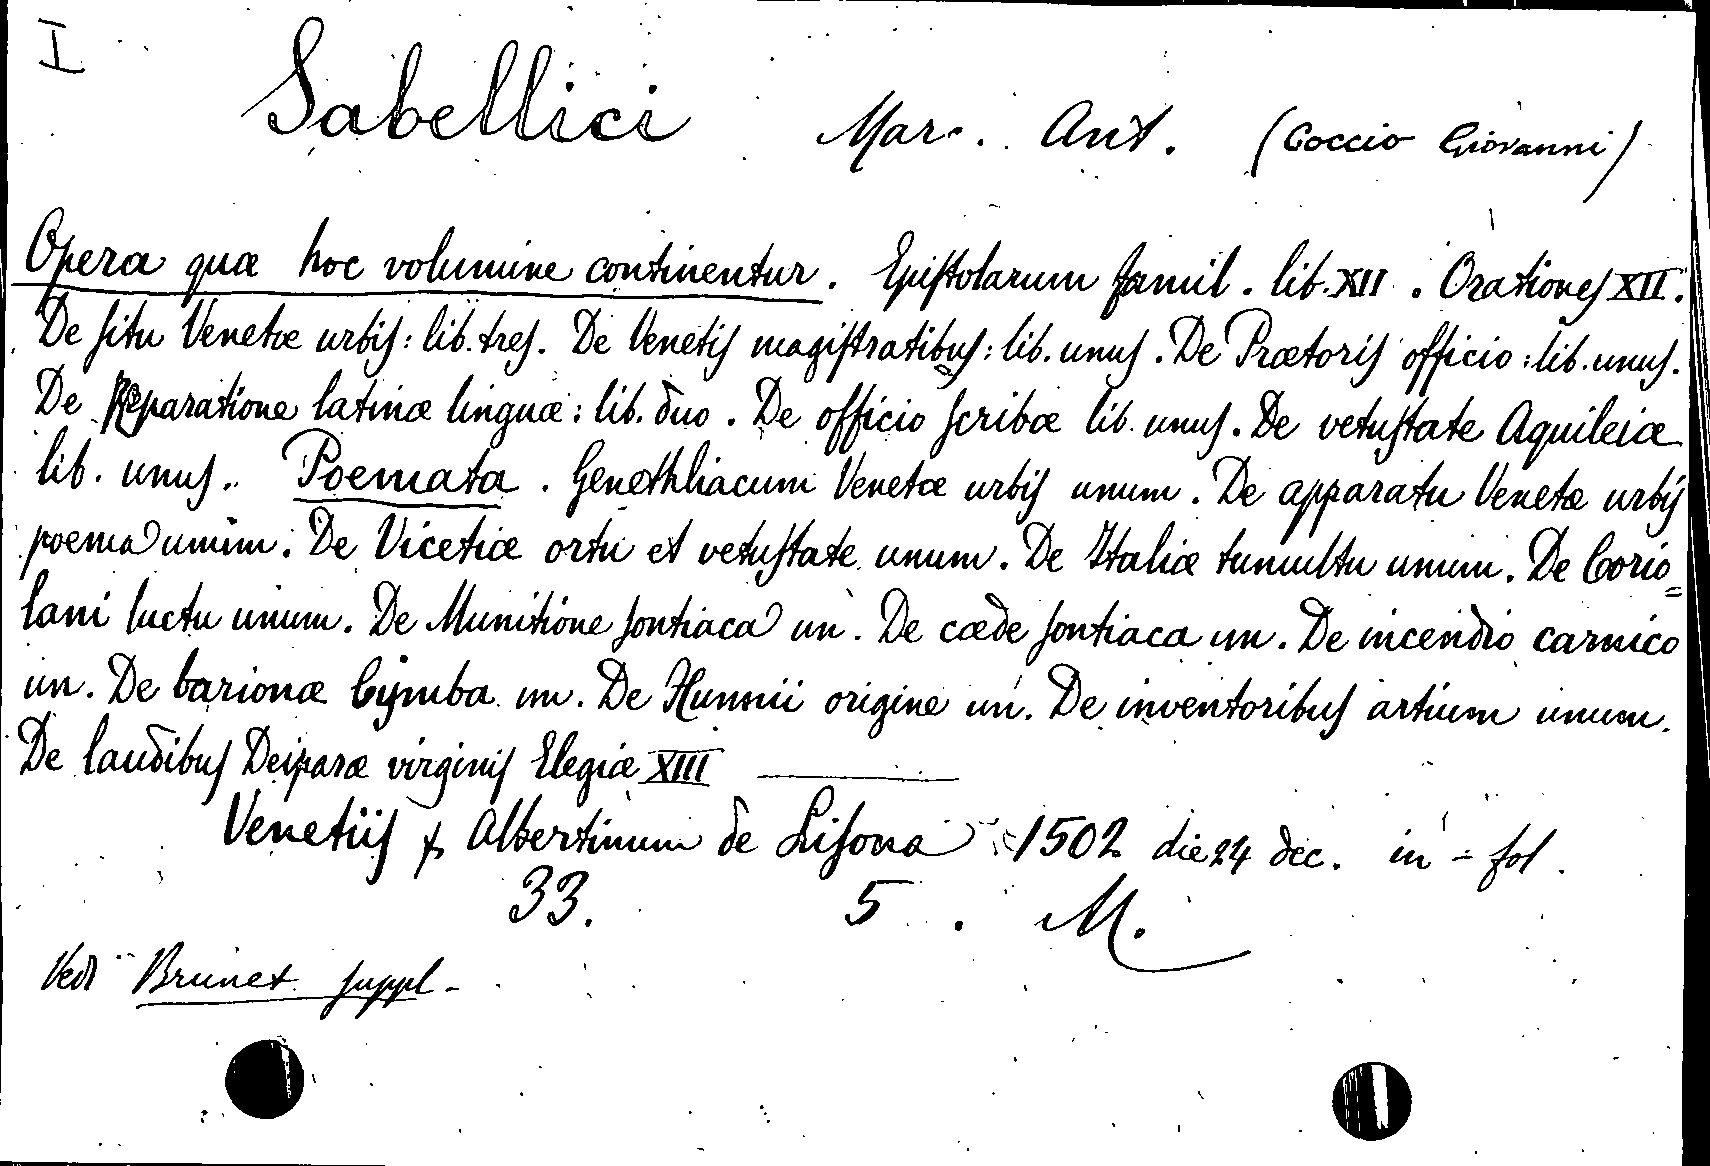 I
Sabellici Marc. Ant. (Coccio Giovanni)
Opera quæ hoc volumine continentur. Epistolarum famil. lib. XII. Orationes XII.
De situ Venetæ urbis: lib. tres. De Venetis magistratibus: lib. unus. De Prætoris officio: lib. unus.
De Reparatione latinæ linguæ: lib. duo. De officio scribæ lib. unus. De vetustate Aquileiæ
lib. unus. Poemata. Genethliacum Venetæ urbis unum. De apparatu Venetæ urbis
poema unum. De Vicetiæ ortu et vetustate unum. De Italiæ tumultu unum. De Corio=
lani luctu unum. De Munitione sontiaca un. De cæde sontiaca un. De incendio carnico
un. De barionæ Cymba un. De Hunnii origine un. De inventoribus artium unum.
De laudibus Deiparæ virginis Elegiæ XIII
Venetiis Albertinum de Lisona 1502 die 24 dec. in-fol.
33. 5. M.
Vedi Brunet suppl.